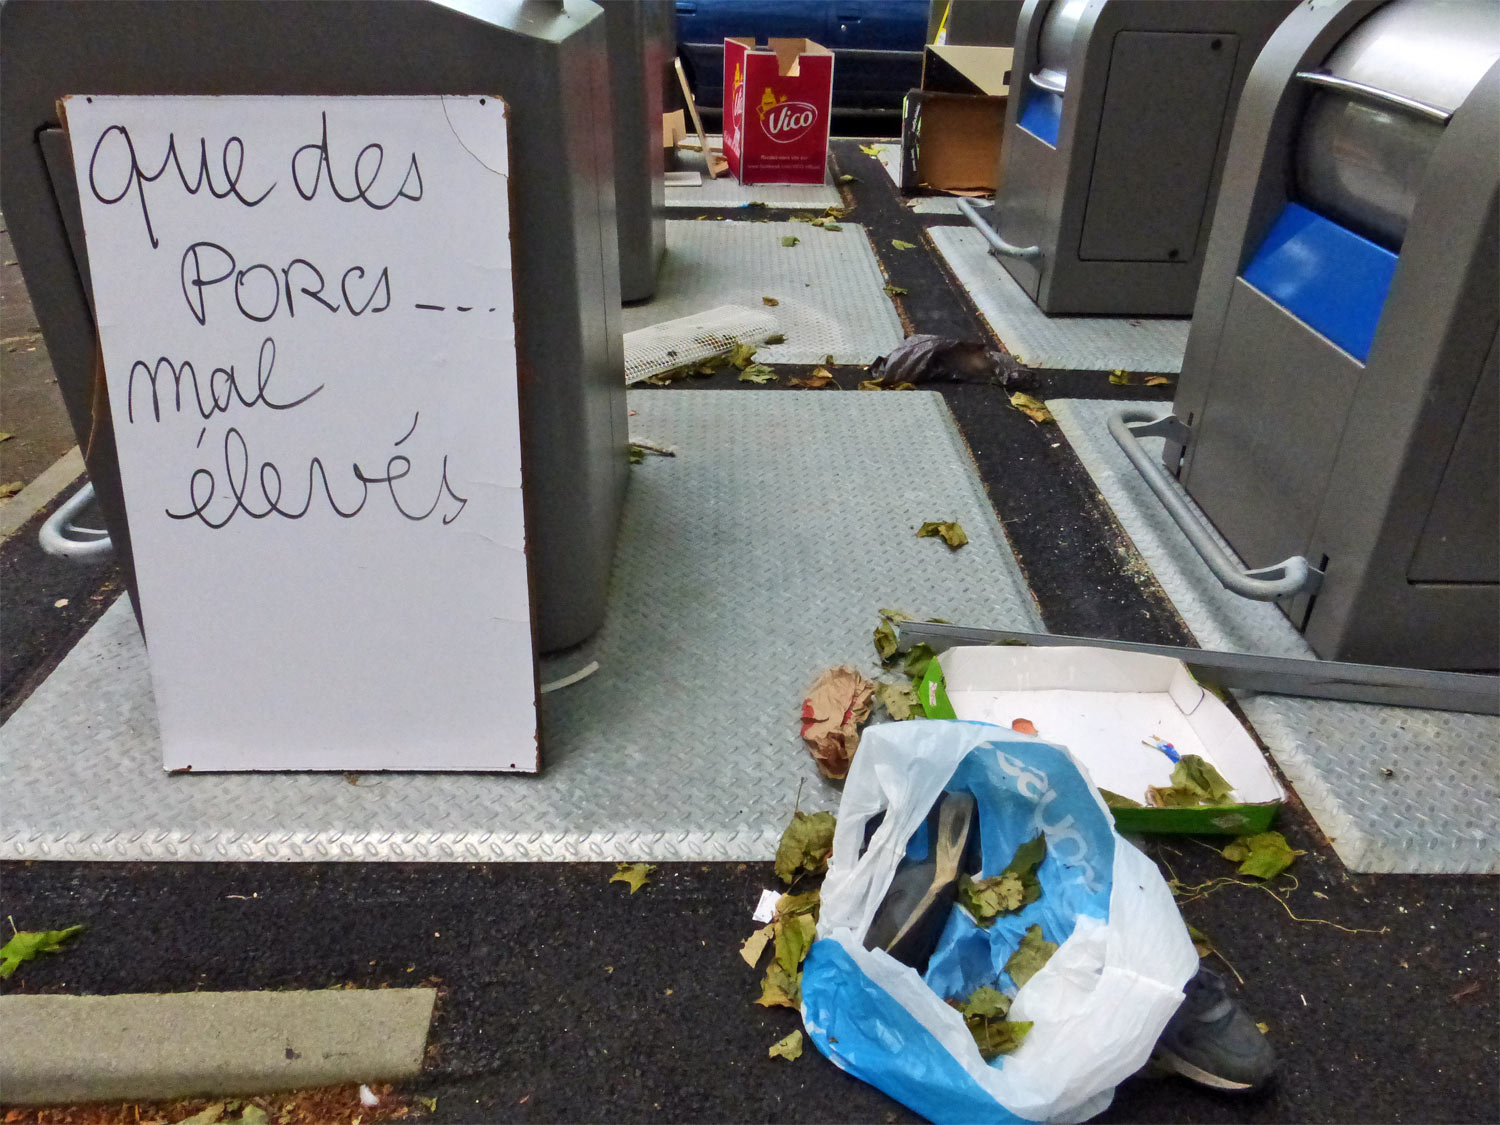 que des
PORCS ---
mal
élevés
Vico